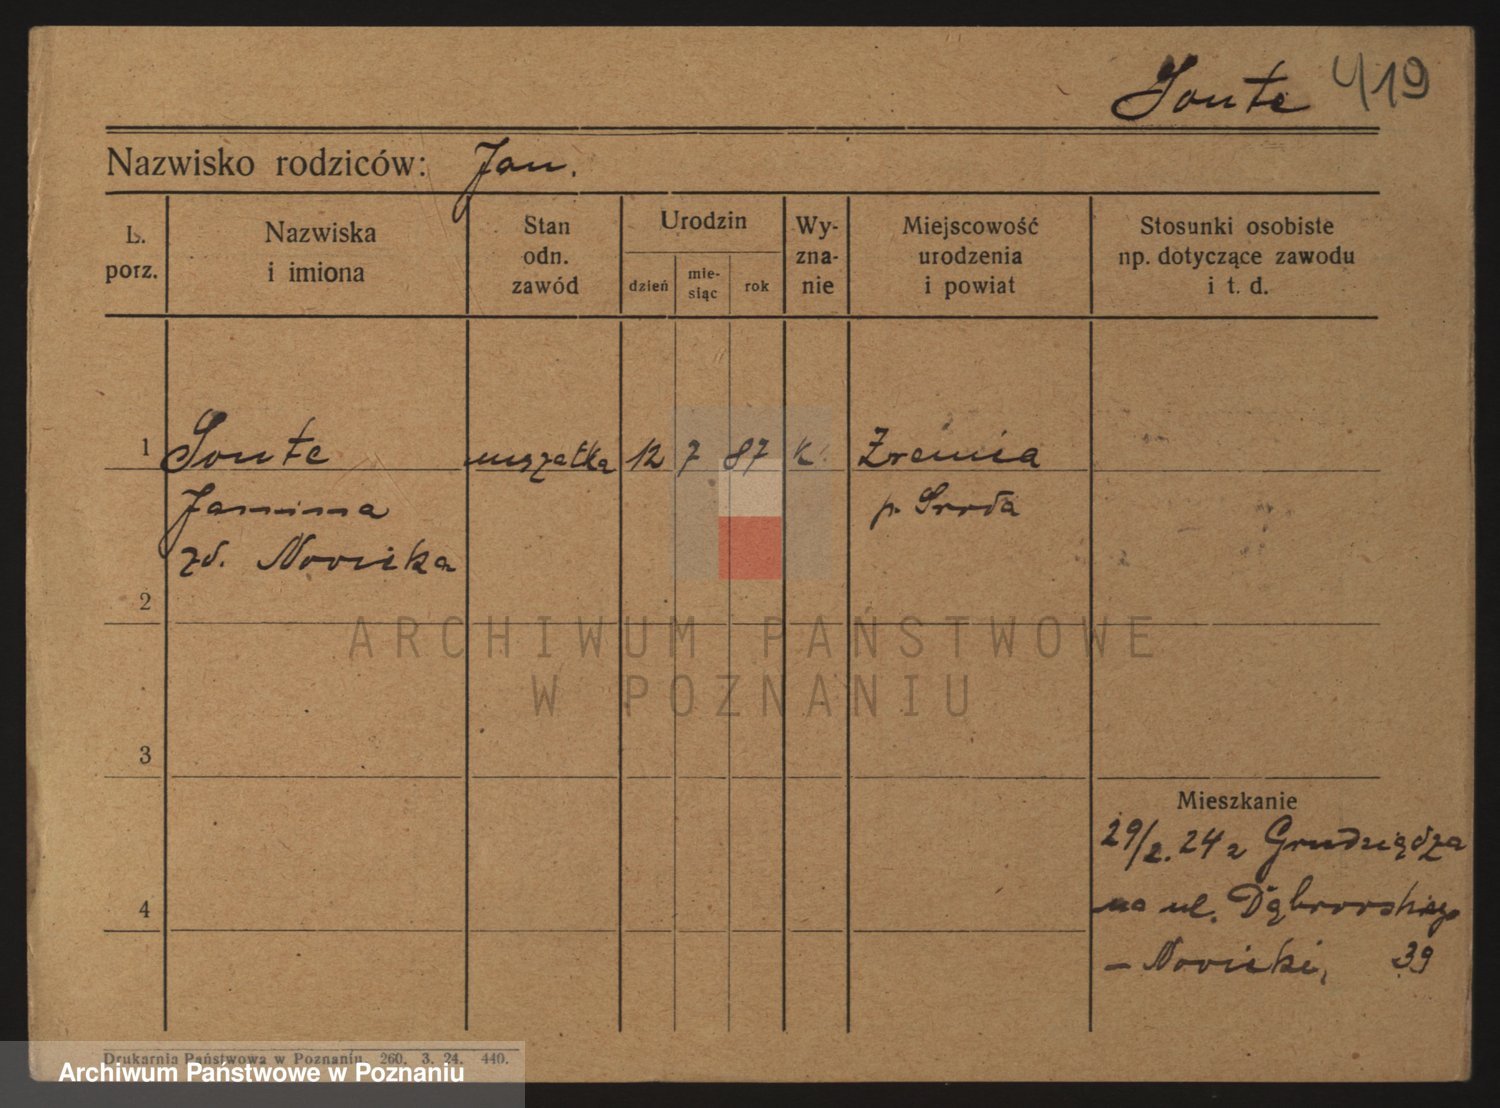 Soute 419
Nazwisko rodziców: Jan.
L. porz.
Nazwiska i imiona
Stan odn. zawód
Urodzin
dzień
mie-siąc
rok
Wy-zna-nie
Miejscowość urodzenia i powiat
Stosunki osobiste np. dotyczące zawodu i t. d.
1 Soute mężatka 12 7 87 k.
Janina p. Środa
zd. Novicka
2
ARCHIWUM PAŃSTWOWE
W POZNANIU
3
Mieszkanie
29/2. 24 z Grudziądza
4
na ul. Dąbrowskiego
– Novicki, 39
Drukarnia Państwowa w Poznaniu 260. 3. 24. 440.
Archiwum Państwowe w Poznaniu